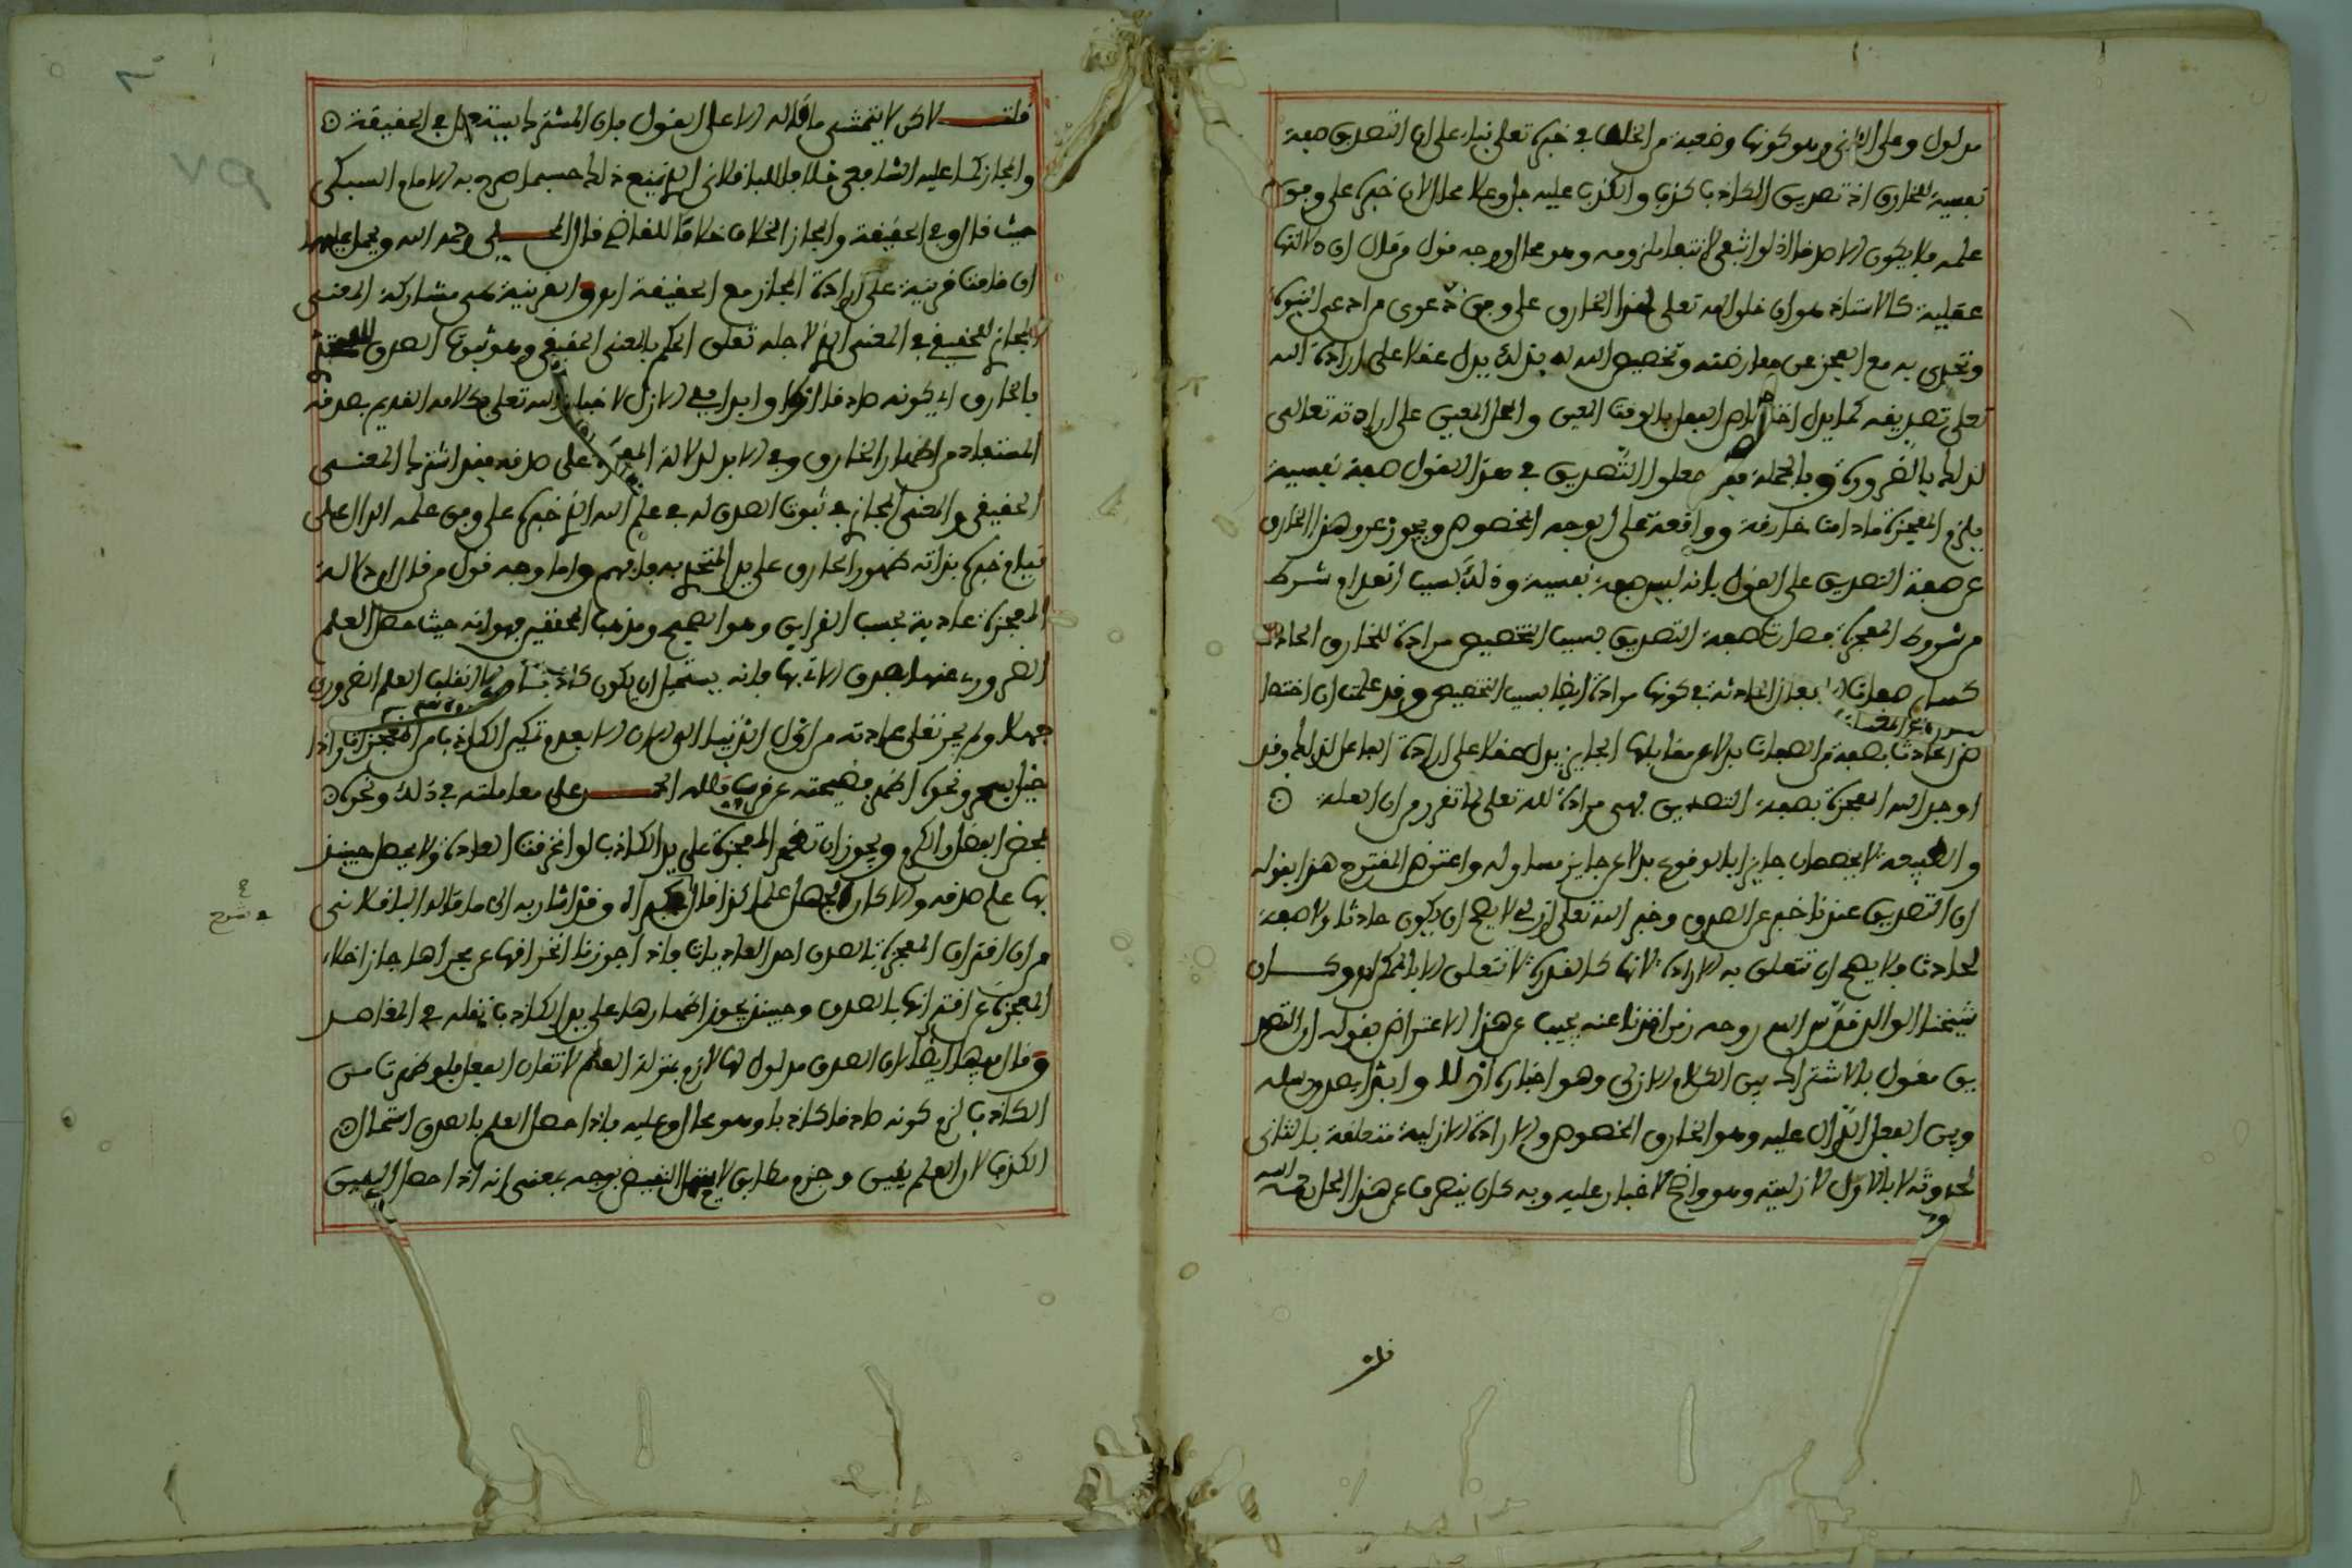 مدلول وعلى الثاني وهو كونها وضعية من الخلف في خبره تعلى بناء على ان التصديق صفة
نفسية للخارق اذ تصديق الكاذب كذب والكذب عليه جل وعلا محال لان خبره على وفق
علمه فلا يكون الا صدقا اذ لو انتفى لانتفا ملزومه وهو محال ووجه قول من قال ان دلالتها
عقلية كالاستاذ هو ان خلق الله تعلى لهذا الخارق على وفق دعوى من ادعى النبوة
وتحدى به مع العجز عن معارضته وتخصيص الله له بذلك يدل عقلا على ارادة الله
تعلى تصديقه كما يدل اختصاص الفعل بالوقت المعين والمحل المعين على ارادته تعالى
لذلك بالضرورة وبالجملة معلول التصديق في هذا القول صفة نفسية
يلزم المعجزة مادامت خارقة وواقعة على الوجه المخصوص ويجوز عرو هذا الخارق
عن صفة التصديق على القول بانه ليس صفة نفسية وذلك بسبب انعدام شرط
من شروط المعجزة فصارت صفة التصديق بسبب التخصيص مرادة للخارق الحادث
كسائر صفات الافعال الحادثة في كونها مرادة ايضا بسبب التخصيص وقد علمت ان اختصا
ص الحادث بصفة من الصفات بدلا عن مقابلها الجايز يدل عقلا على ارادة الفاعل لذلك وقد
اوجد الله المعجزة بصفة التصديق فهي مرادة لله تعلى لما تقرر من ان العلة
والطبيعة لا يخصصان جايزا بالوقوع بدلا عن جايز مساو له واعترض المقترح هذا بقوله
ان التصديق عندنا خبر عن الصدق وخبر الله تعلى ازلي لا يصح ان يكون حادثا ولا صفة
لحادث ولا يصح ان تتعلق به الارادة لانها كالقدرة لا تتعلق الا بالممكن وكـــان
شيخنا الوالد قدس الله روحه زمن اخذنا عنه يجيب عن هذا الاعتراض بقوله ان التصد
يق مقول بالاشتراك بين الكلام الازلي وهو اخباره ازلا وابدا بصدق رسله
وبين الفعل الدال عليه وهو الخارق المخصوص والارادة الازلية متعلقة بالثاني
لحدوثه لا بالاول لازليته وهو واضح لا غبار عليه وبه كان ينفصل عن هذا المحل رحمه الله
قلت
قلـــت لاكن لا يتمشى ما قاله الا على القول بان المشترك في الحقيقة
والمجاز كما عليه الشافعي خلافا للباقلاني الذي يمنع ذلك حسبما صرح به الامام السبكي
حيث قال وفي الحقيقة والمجاز الخلاف خلافا للقاضي قال المحـــلي رحمه الله ويحمل عليهما
ان قامت قرينة على ارادة المجاز مع الحقيقة والقرينة هي مشاركة المعنى
المجازي للحقيقي في المعنى الذي لاجله تعلق الحكم بالمعنى الحقيقي وهو ثبوت الصدق للمتحدي
بالخارق اي كونه صادقا ازلا وابدا ففي الازل لاخبار الله تعلى بكلامه القديم بصدقه
المستفاد من اظهار الخارق وفي الابد لدلالة المعجزة على صدقه فقد اشترك المعنى
الحقيقي والمعنى المجازي في ثبوت الصدق له في علم الله الذي خبره على وفق علمه الدال على
تبليغ خبره بذاته ظهور الخارق على يد المتحدي به فافهم واما وجه قول من قال ان دلالة
المعجزة عادية بحسب القراين وهو الصحيح ومذهب المحققين فهو انه حيث حصل العلم
الضروري عنها بصدق الاتي بها فانه يستحيل ان يكون كاذبا والا انقلب العلم الضروري
جهلا ولم يجر تعلى عادته من اول الدنيا الى الان الا بعدم تمكين الكاذب من المعجزات واذا
خيل بسحر ونحوه اظهر فضيحته عن قرب فلله الحـــمد على معاملته في ذلك ونحوه
بمحض الفضل والكرم ويجوز ان تظهر المعجزة على يد الكاذب لو انخرقت العادة ولا يحصل حينئذ
بها علم صدقه والا كان الجهل علما كذا قال في الكبرى وقد اشار به الى ما قاله الباقلاني
في شرح
من ان اقتران المعجزة بالصدق احد العاديات فاذا جوزنا انخراقها عن مجراها جاز اخلاء
المعجزة عن اقترانها بالصدق وحينئذ يجوز اظهارها على يد الكاذب نقله في المقاصد
وقال فيها ايضا لان الصدق مدلول لها لازم بمنزلة العلم لاتقان الفعل فلو ظهرت من
الكاذب لزم كونه صادقا كاذبا وهو محال وعليه فاذا حصل العلم بالصدق استحال
الكذب لان العلم يقين وجزم مطابق لا يحتمل النقيض بوجه بمعنى انه اذا حصل اليقين